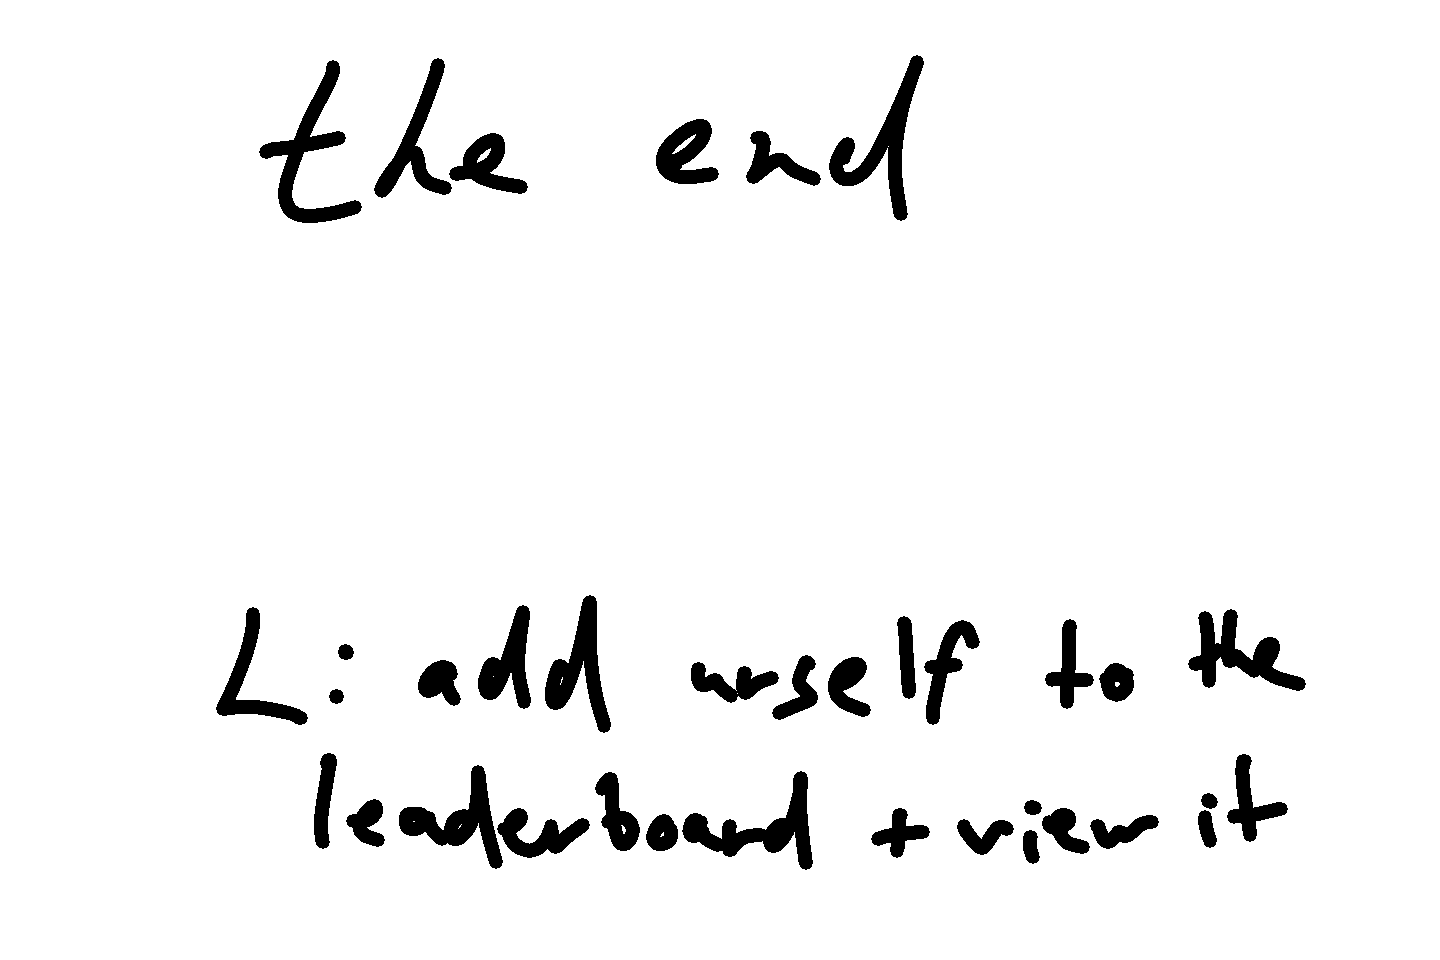 the end
L: add urself to the
leaderboard + view it